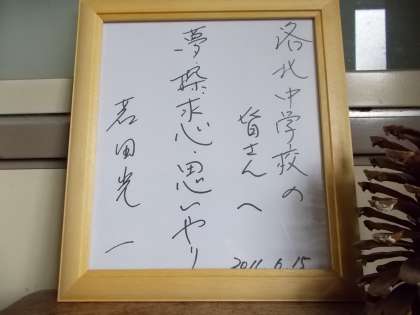 洛北中学校の
皆さんへ
夢・探求心・思いやり
若田光一
2011.6.15